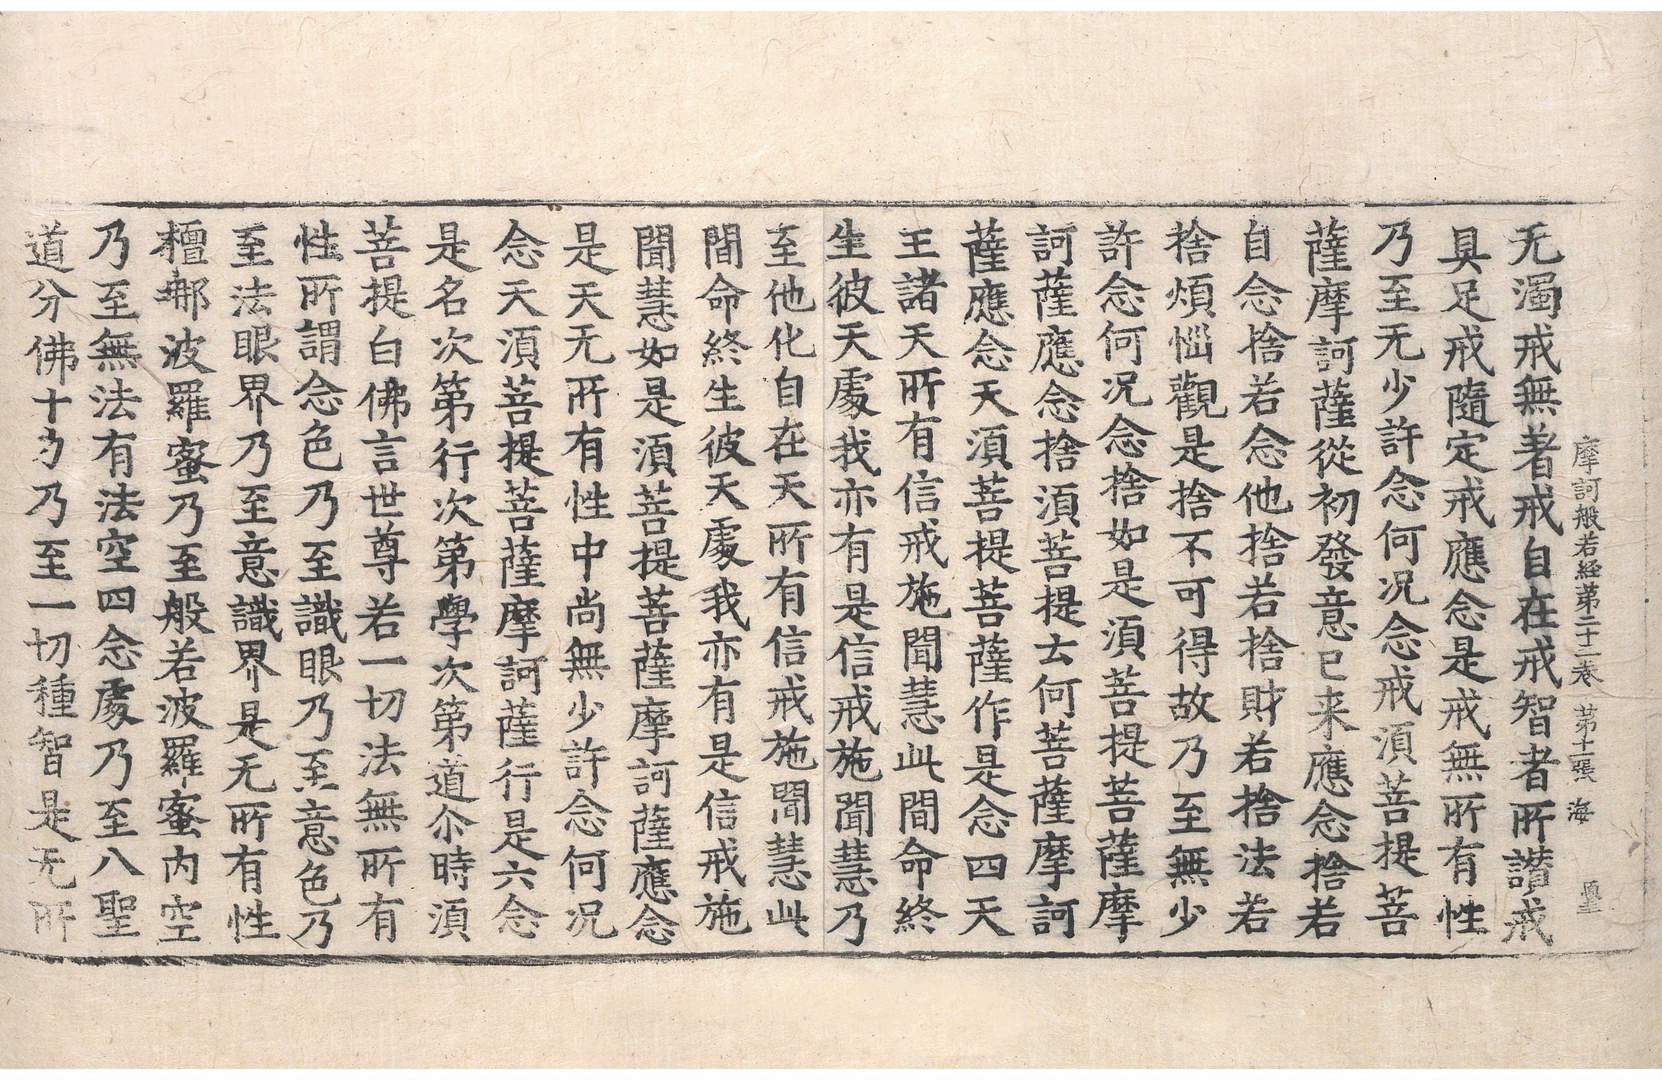 摩訶般若経苐二十二卷 苐十二張 海
无濁戒無著戒自在戒智者所讃戒
具足戒隨定戒應念是戒無所有性
乃至无少許念何况念戒湏菩提菩
薩摩訶薩從初發意已来應念捨若
自念捨若念他捨若捨財若捨法若
捨煩惱觀是捨不可得故乃至無少
許念何况念捨如是湏菩提菩薩摩
訶薩應念捨湏菩提云何菩薩摩訶
薩應念天湏菩提菩薩作是念四天
王諸天所有信戒施聞慧此間命終
生彼天處我亦有是信戒施聞慧乃
至他化自在天所有信戒施聞慧此
間命終生彼天處我亦有是信戒施
聞慧如是湏菩提菩薩摩訶薩應念
是天无所有性中尚無少許念何况
念天湏菩提菩薩摩訶薩行是六念
是名次第行次第學次第道尒時湏
菩提白佛言世尊若一切法無所有
性所謂念色乃至識眼乃至意色乃
至法眼界乃至意識界是无所有性
檀那波羅蜜乃至般若波羅蜜内空
乃至無法有法空四念處乃至八聖
道分佛十力乃至一切種智是无所